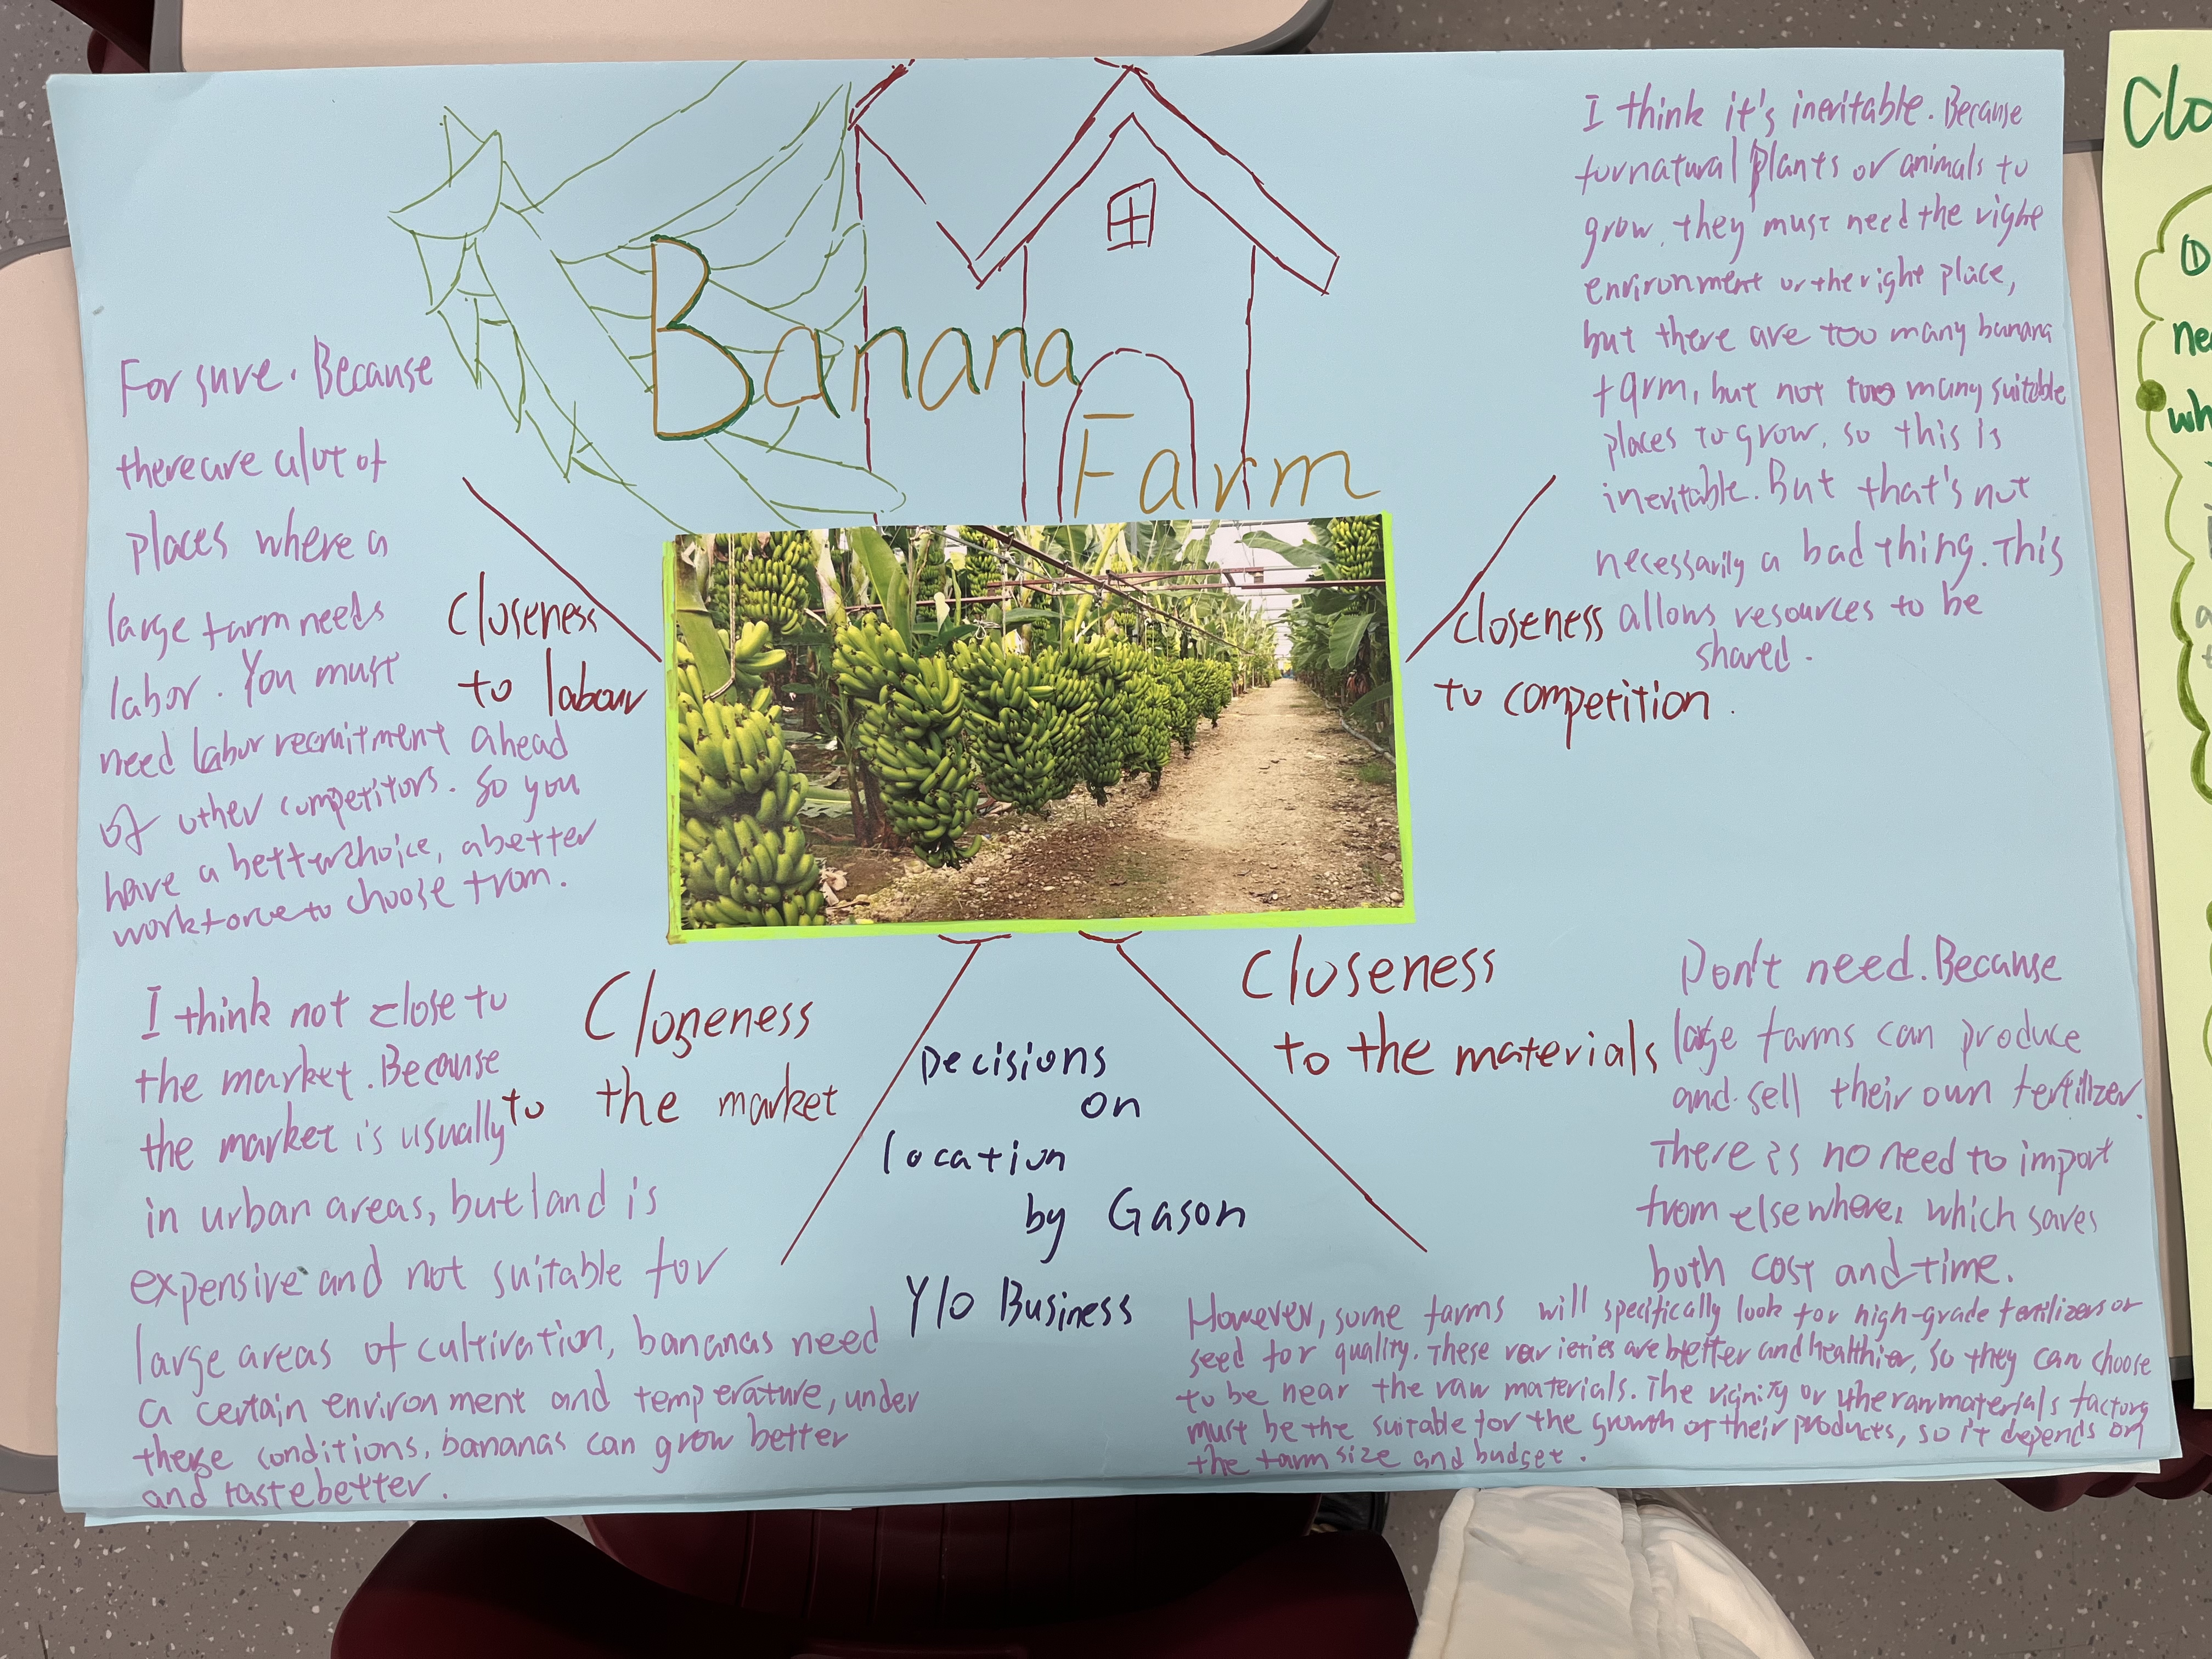 Banana
Farm
For sure. Because
there are alot of
places where a
large farm needs
labor. You must
need labor recruitment ahead
of other competitors. So you
have a better choice, a better
workforce to choose from.
closeness
to labour
I think it's ineritable. Because
for natural plants or animals to
grow, they must need the right
environment or the right place,
but there are too many banana
farm, but not too many suitable
places to grow, so this is
ineritable. But that's not
necessarily a bad thing. This
allows resources to be
shared.
closeness
to competition.
I think not close to
the market. Because
the market is usually
in urban areas, but land is
expensive and not suitable for
large areas of cultivation, bananas need
a certain environment and temperature, under
these conditions, bananas can grow better
and taste better.
Closeness
to the market
Decisions
on
location
by Gason
Y10 Business
Closeness
to the materials
Don't need. Because
large farms can produce
and sell their own fertilizer.
There is no need to import
from elsewhere, which saves
both cost and time.
However, some farms will specifically look for high-grade fertilizers or
seed for quality. These varieties are better and healthier, so they can choose
to be near the raw materials. The vicinity or the raw materials factory
must be the suitable for the growth of their products, so it depends on
the farm size and budget.
Clo
①
ne
wh